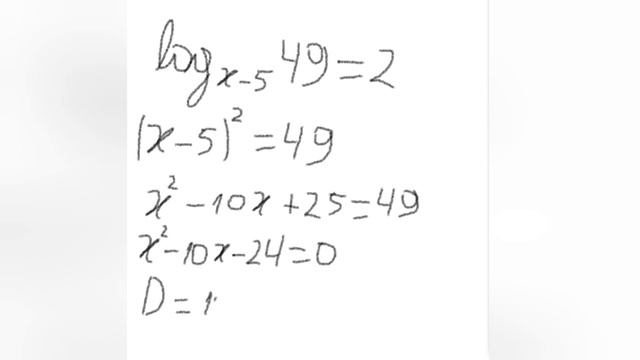 log_{x-5} 49 = 2
(x-5)² = 49
x² - 10x + 25 = 49
x² - 10x - 24 = 0
D = 1